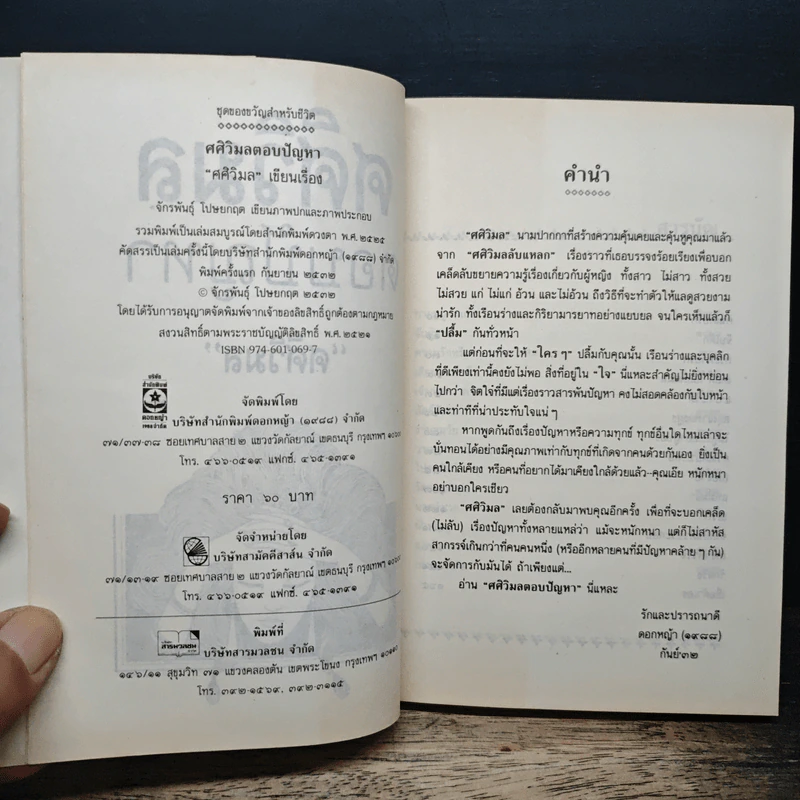 ชุดของขวัญสำหรับชีวิต
ศศิวิมลตอบปัญหา
"ศศิวิมล" เขียนเรื่อง
จักรพันธุ์ โปษยกฤต เขียนภาพปกและภาพประกอบ
รวมพิมพ์เป็นเล่มสมบูรณ์โดยสำนักพิมพ์ดวงตา พ.ศ.๒๕๒๕
คัดสรรเป็นเล่มครั้งนี้โดยบริษัทสำนักพิมพ์ดอกหญ้า (๑๙๘๘) จำกัด
พิมพ์ครั้งแรก กันยายน ๒๕๓๒
© จักรพันธุ์ โปษยกฤต ๒๕๓๒
โดยได้รับการอนุญาตจัดพิมพ์จากเจ้าของลิขสิทธิ์ถูกต้องตามกฎหมาย
สงวนสิทธิ์ตามพระราชบัญญัติลิขสิทธิ์ พ.ศ. ๒๕๒๑
ISBN 974-601-069-7
บริษัท
สำนักพิมพ์
ดอกหญ้า
จัดพิมพ์โดย
บริษัทสำนักพิมพ์ดอกหญ้า (๑๙๘๘) จำกัด
๗๑/๓๗-๓๘ ซอยเทศบาลสาย ๒ แขวงวัดกัลยาณ์ เขตธนบุรี กรุงเทพฯ
โทร. ๔๖๖-๐๕๑๙ แฟกซ์. ๔๖๕-๑๓๙๑
ราคา ๖๐ บาท
จัดจำหน่ายโดย
บริษัทสามัคคีสาส์น จำกัด
๗๑/๑๓-๑๙ ซอยเทศบาลสาย ๒ แขวงวัดกัลยาณ์ เขตธนบุรี กรุงเทพฯ
โทร. ๔๖๖-๐๕๑๙ แฟกซ์. ๔๖๕-๑๓๙๑
พิมพ์ที่
สารมวลชน
บริษัทสารมวลชน จำกัด
๑๔๖/๑๑ สุขุมวิท ๗๑ แขวงคลองตัน เขตพระโขนง กรุงเทพฯ ๑๐๑๑๐
โทร. ๓๙๒-๑๕๖๙, ๓๙๒-๓๑๑๕
คำนำ
"ศศิวิมล" นามปากกาที่สร้างความคุ้นเคยและคุ้นหูคุณมาแล้ว
จาก "ศศิวิมลลับแหลก" เรื่องราวที่เธอบรรจงร้อยเรียงเพื่อบอก
เคล็ดลับขยายความรู้เรื่องเกี่ยวกับผู้หญิง ทั้งสาว ไม่สาว ทั้งสวย
ไม่สวย แก่ ไม่แก่ อ้วน และไม่อ้วน ถึงวิธีที่จะทำตัวให้แลดูสวยงาม
น่ารัก ทั้งเรือนร่างและกิริยามารยาทอย่างแยบยล จนใครเห็นแล้วก็
"ปลื้ม" กันทั่วหน้า
แต่ก่อนที่จะให้ "ใคร ๆ" ปลื้มกับคุณนั้น เรือนร่างและบุคลิก
ที่ดีเพียงเท่านี้คงยังไม่พอ สิ่งที่อยู่ใน "ใจ" นี่แหละสำคัญไม่ยิ่งหย่อน
ไปกว่า จิตใจที่มีแต่เรื่องราวสารพันปัญหา คงไม่สอดคล้องกับใบหน้า
และท่าทีที่น่าประทับใจแน่ ๆ
หากพูดกันถึงเรื่องปัญหาหรือความทุกข์ ทุกข์อื่นใดไหนเล่าจะ
บั่นทอนได้อย่างมีคุณภาพเท่ากับทุกข์ที่เกิดจากคนด้วยกันเอง ยิ่งเป็น
คนใกล้เคียง หรือคนที่อยากได้มาเคียงใกล้ด้วยแล้ว--คุณเอ๊ย หนักหนา
อย่าบอกใครเชียว
"ศศิวิมล" เลยต้องกลับมาพบคุณอีกครั้ง เพื่อที่จะบอกเคล็ด
(ไม่ลับ) เรื่องปัญหาทั้งหลายแหล่ว่า แม้จะหนักหนา แต่ก็ไม่สาหัส
สากรรจ์เกินกว่าที่คนคนหนึ่ง (หรืออีกหลายคนที่มีปัญหาคล้าย ๆ กัน)
จะจัดการกับมันได้ ถ้าเพียงแต่...
อ่าน "ศศิวิมลตอบปัญหา" นี่แหละ
รักและปรารถนาดี
ดอกหญ้า (๑๙๘๘)
กันย์'๓๒